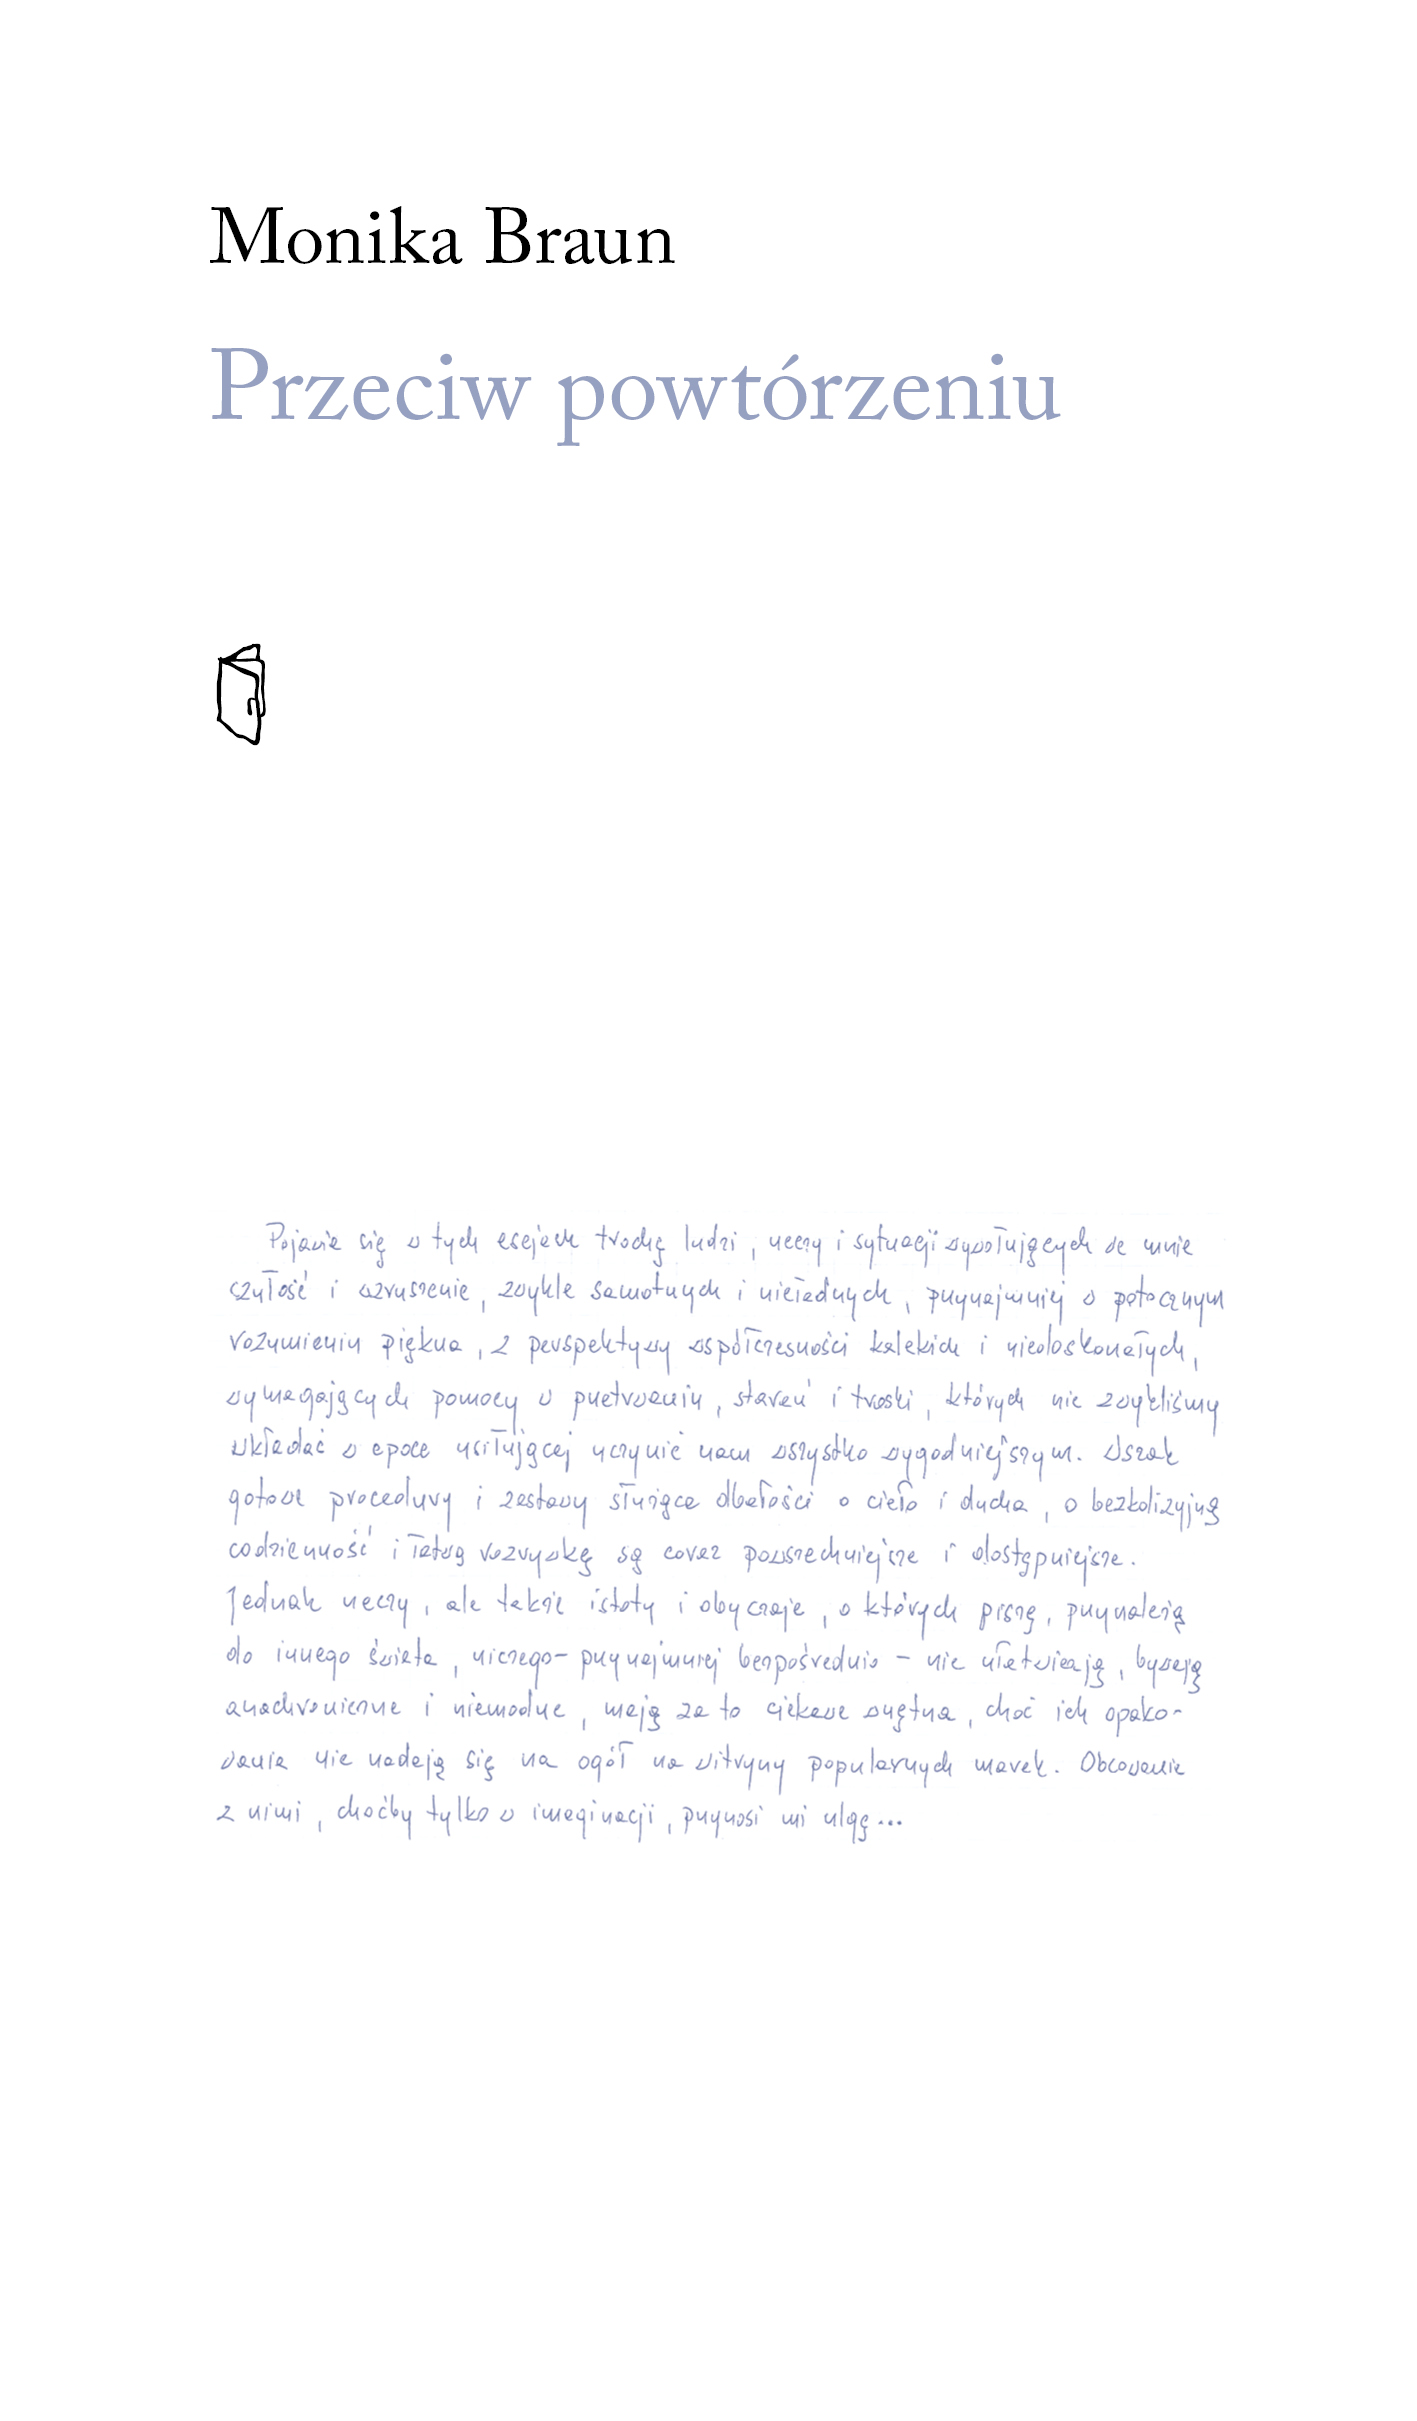 Monika Braun
Przeciw powtórzeniu
Pojawia się w tych esejach trochę ludzi, rzeczy i sytuacji wywołujących we mnie
czułość i wzruszenie, zwykle samotnych i nieładnych, przynajmniej w potocznym
rozumieniu piękna, z perspektywy współczesności kalekich i niedoskonałych,
wymagających pomocy w przetrwaniu, starań i troski, których nie zwykliśmy
wkładać w epoce usiłującej uczynić nam wszystko wygodniejszym. Wszak
gotowe procedury i zestawy służące dbałości o ciało i ducha, o bezkolizyjną
codzienność i łatwą rozrywkę są coraz powszechniejsze i dostępniejsze.
Jednak rzeczy, ale także istoty i obyczaje, o których piszę, przynależą
do innego świata, niczego - przynajmniej bezpośrednio - nie ułatwiają, bywają
anachroniczne i niemodne, mają za to ciekawe wnętrza, choć ich opako-
wania nie nadają się na ogół na witryny popularnych marek. Obcowanie
z nimi, choćby tylko w imaginacji, przynosi mi ulgę...